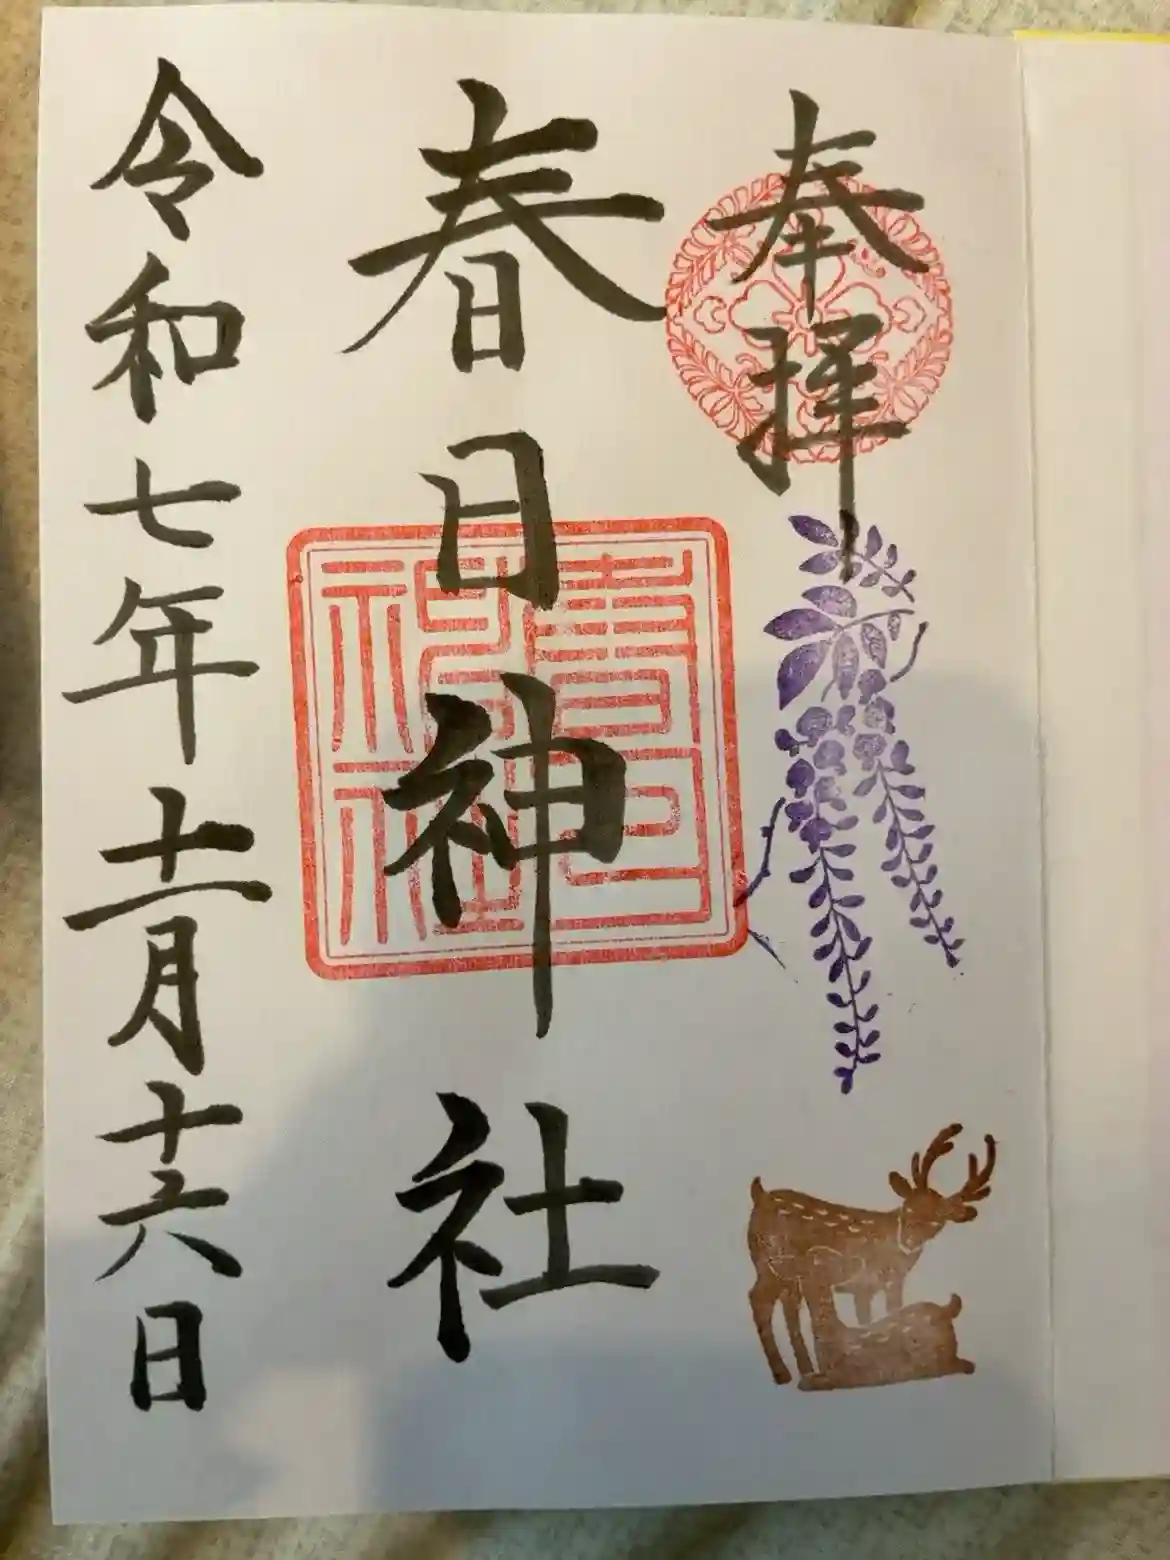 奉拝
春日神社
令和七年十一月十六日
春日
神社